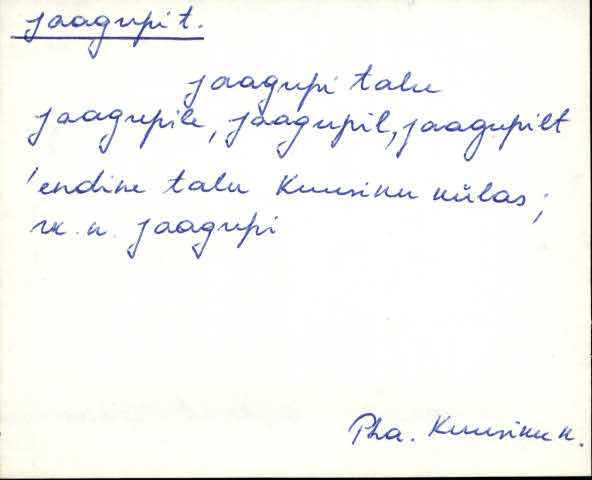 Jaagupi t.
Jaagupi talu
Jaagupile, Jaagupil, Jaagupilt
'endine talu Kuusiku külas;
rk. n. Jaagupi
Pha. Kuusiku k.